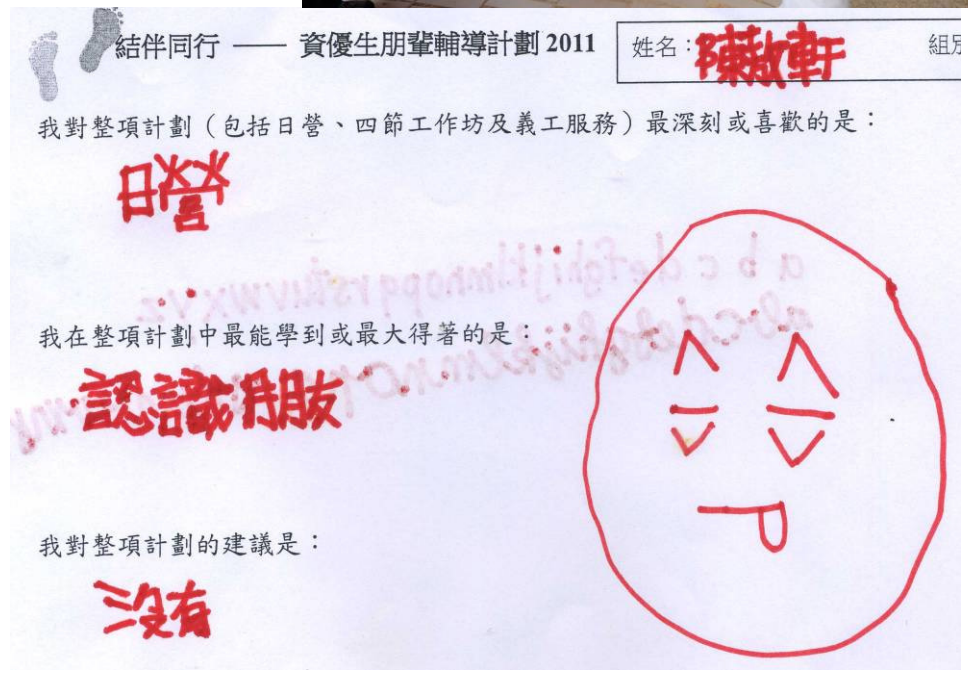 結伴同行 —— 資優生朋輩輔導計劃 2011
姓名：陳敬軒
組別
我對整項計劃（包括日營、四節工作坊及義工服務）最深刻或喜歡的是：
日營
我在整項計劃中最能學到或最大得著的是：
認識朋友
我對整項計劃的建議是：
沒有